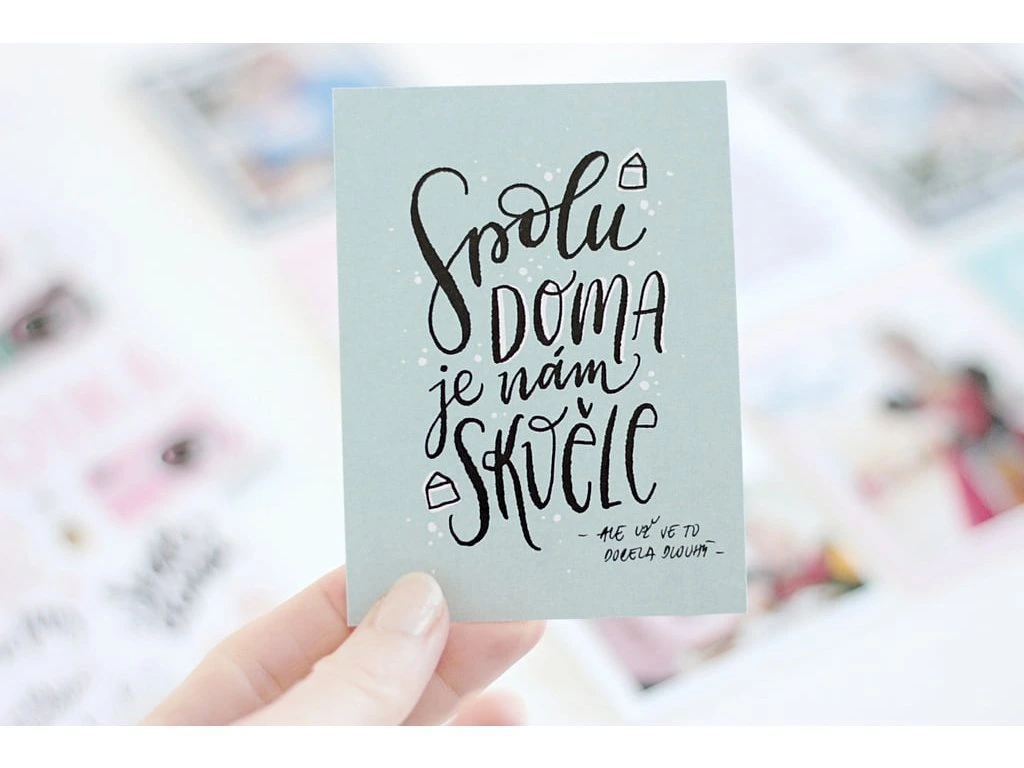 Spolu
DOMA
je nám
SKVĚLE
- ALE UŽ JE TO
DOCELA DLOUHÝ -